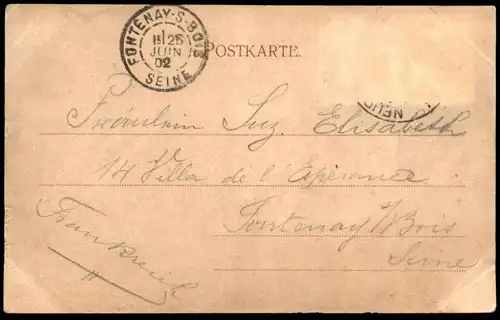 FONTENAY-S-BOIS
25
JUIN
02
SEINE
POSTKARTE.
NEU
Fräulein Suz. Elisabeth
14 Villa de l'Espérance
Fontenay s/Bois
Seine
Frankreich